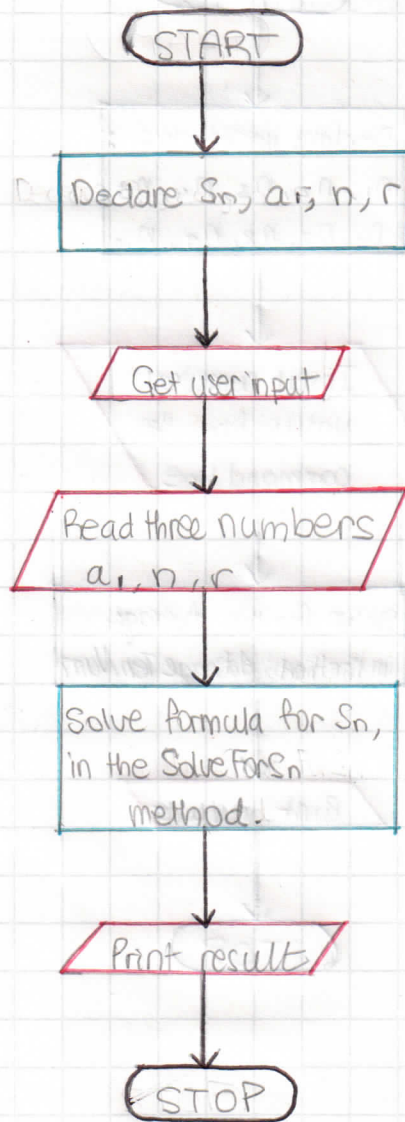 START
Declare Sn, a1, n, r
Get user input
Read three numbers
a1, n, r
Solve formula for Sn,
in the SolveForSn
method.
Print result
STOP